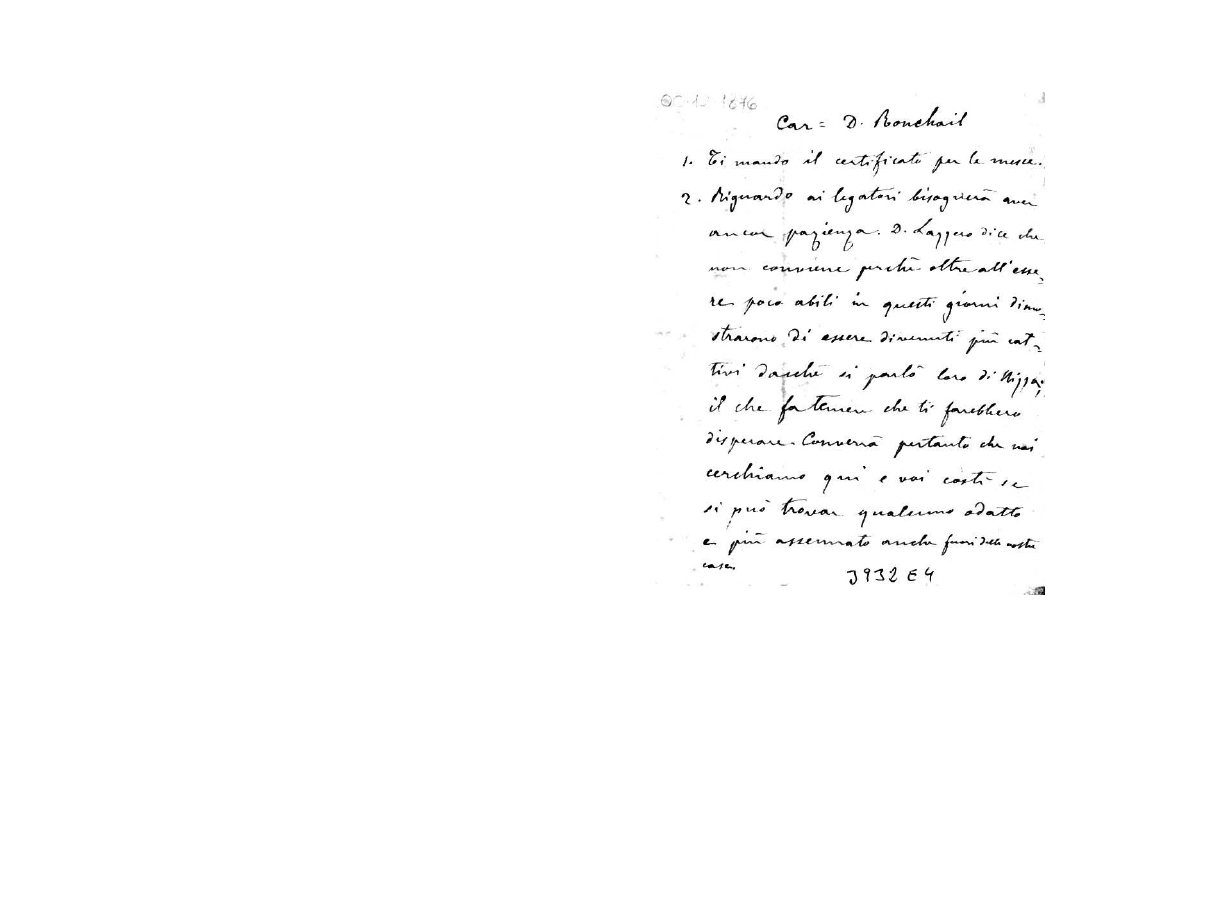 1876
Car= D. Ronchail
1. Ti mando il certificato per le messe.
2. Riguardo ai legatori bisognerà aver
ancor pazienza. D. Lazzero dice che
non conviene perchè oltre all'esse=
re poco abili in questi giorni dimo=
strarono di essere divenuti più cat=
tivi dacchè si parlò loro di Nizza;
il che fa temere che ti farebbero
disperare. Converrà pertanto che noi
cerchiamo qui e voi costì se
si può trovar qualcuno adatto
e più assennato anche fuori delle nostre
case.
3932 E4